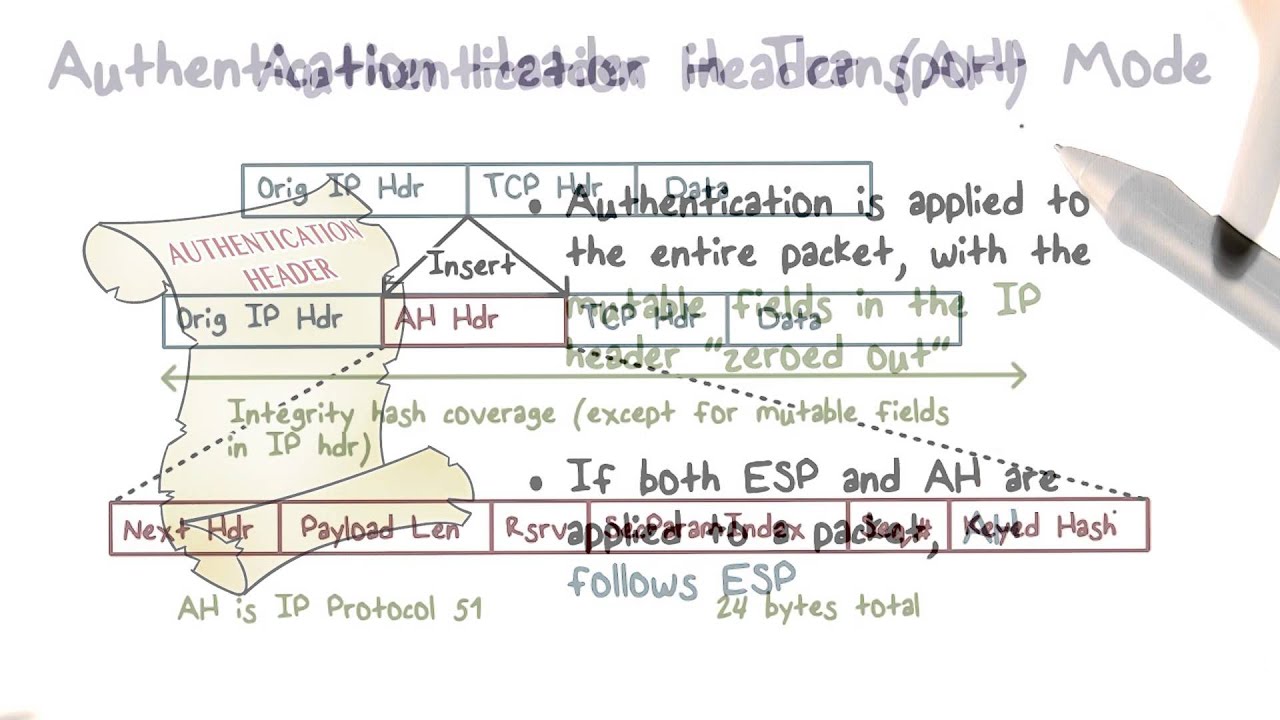 Authentication Header in Transport Mode
Authentication Header (AH)
Orig IP Hdr TCP Hdr Data
AUTHENTICATION
HEADER
Insert
Orig IP Hdr AH Hdr TCP Hdr Data
Integrity hash coverage (except for mutable fields
in IP hdr)
Next Hdr Payload Len Rsrv SecParamIndex Seq# Keyed Hash
AH is IP Protocol 51 24 bytes total
• Authentication is applied to
the entire packet, with the
mutable fields in the IP
header "zeroed out"
• If both ESP and AH are
applied to a packet, AH
follows ESP